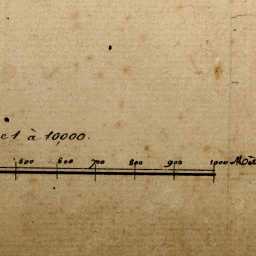 1 à 10,000.
500 600 700 800 900 1000